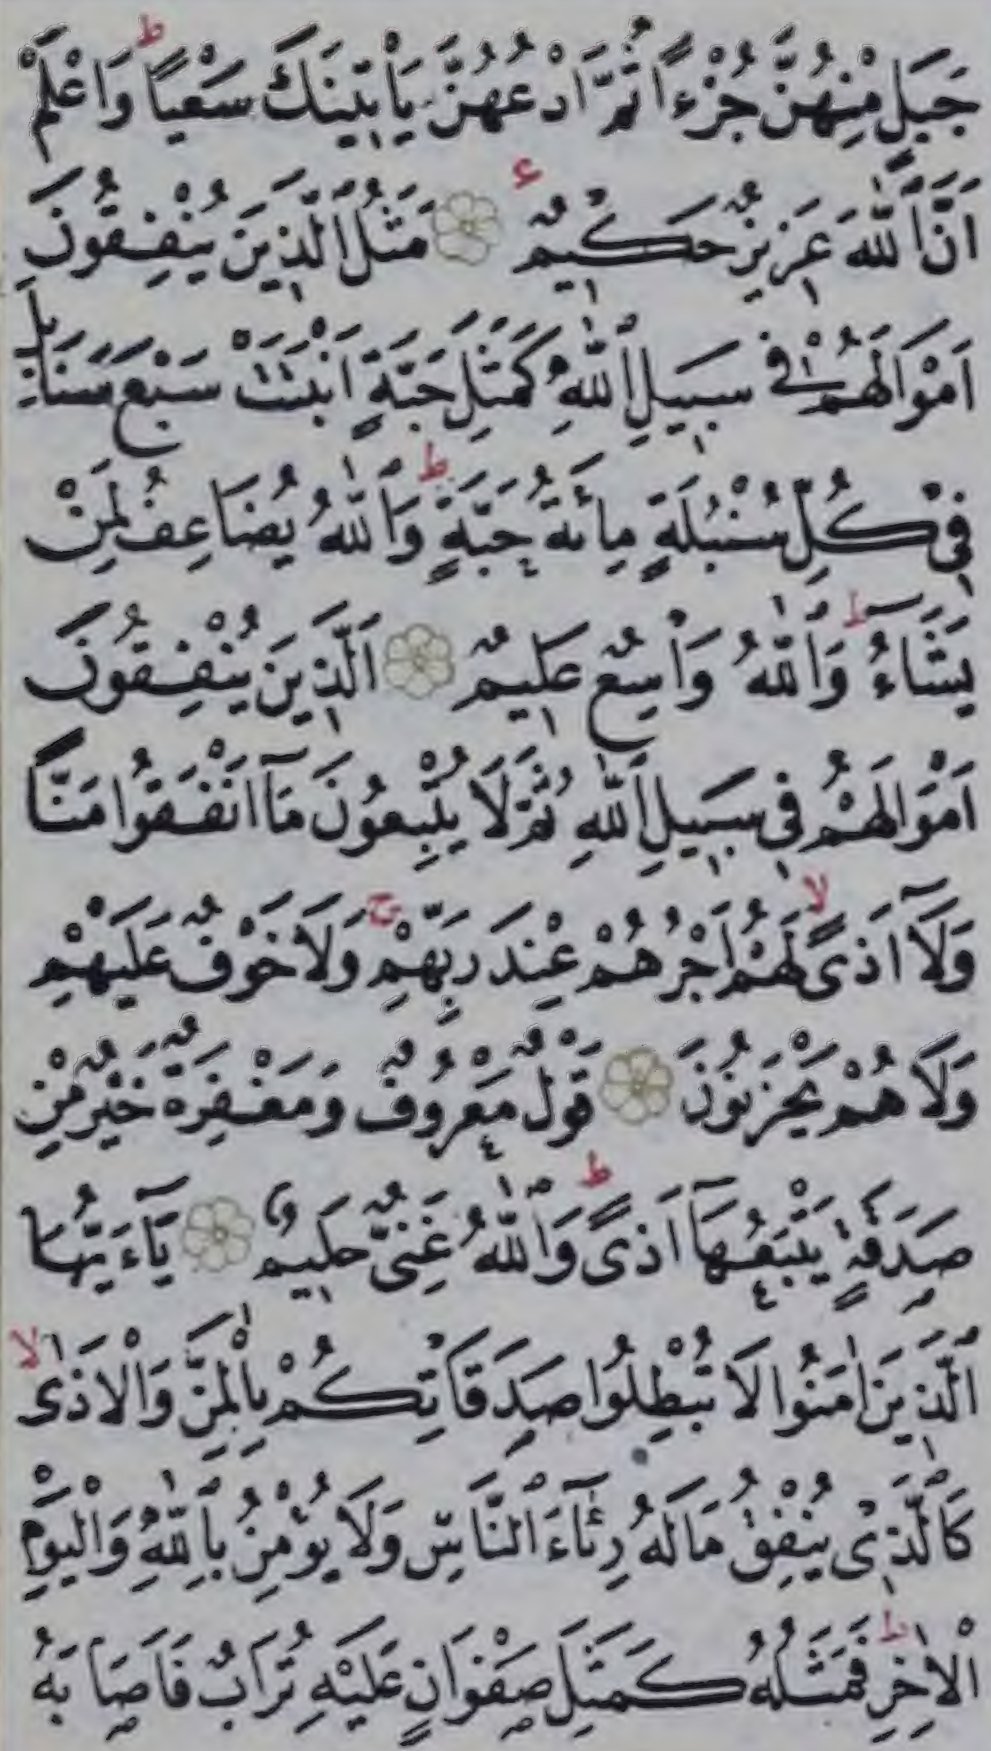 جَبَلٍ مِنْهُنَّ جُزْءًا ثُمَّ ادْعُهُنَّ يَأْتِينَكَ سَعْيًا ط وَاعْلَمْ
اَنَّ اللّٰهَ عَزِيزٌ حَكِيمٌ ع مَثَلُ الَّذِينَ يُنْفِقُونَ
اَمْوَالَهُمْ فِي سَبِيلِ اللّٰهِ كَمَثَلِ حَبَّةٍ اَنْبَتَتْ سَبْعَ سَنَابِلَ
فِي كُلِّ سُنْبُلَةٍ مِائَةُ حَبَّةٍ ط وَاللّٰهُ يُضَاعِفُ لِمَنْ
يَشَاءُ ط وَاللّٰهُ وَاسِعٌ عَلِيمٌ اَلَّذِينَ يُنْفِقُونَ
اَمْوَالَهُمْ فِي سَبِيلِ اللّٰهِ ثُمَّ لَا يُتْبِعُونَ مَآ اَنْفَقُوا مَنًّا
وَلَآ اَذًى لا لَهُمْ اَجْرُهُمْ عِنْدَ رَبِّهِمْ ج وَلَا خَوْفٌ عَلَيْهِمْ
وَلَا هُمْ يَحْزَنُونَ قَوْلٌ مَعْرُوفٌ وَمَغْفِرَةٌ خَيْرٌ مِنْ
صَدَقَةٍ يَتْبَعُهَآ اَذًى ط وَاللّٰهُ غَنِيٌّ حَلِيمٌ يَآءَيُّهَا
الَّذِينَ اٰمَنُوا لَا تُبْطِلُوا صَدَقَاتِكُمْ بِالْمَنِّ وَالْاَذٰى لا
كَالَّذِي يُنْفِقُ مَالَهُ رِئَآءَ النَّاسِ وَلَا يُؤْمِنُ بِاللّٰهِ وَالْيَوْمِ
الْاٰخِرِ ط فَمَثَلُهُ كَمَثَلِ صَفْوَانٍ عَلَيْهِ تُرَابٌ فَاَصَابَهُ